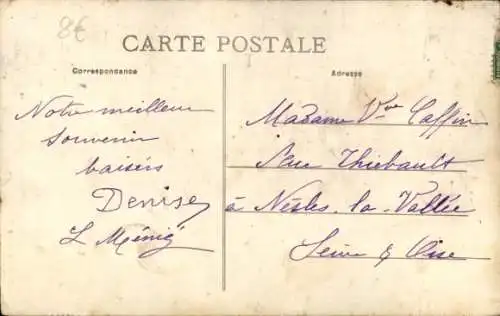 8€
CARTE POSTALE
Correspondance
Adresse
Notre meilleur
souvenir
baisers
Denise
Madame Vve Caffin
Rue Thiebault
à Nesles-la-Vallée
Seine & Oise